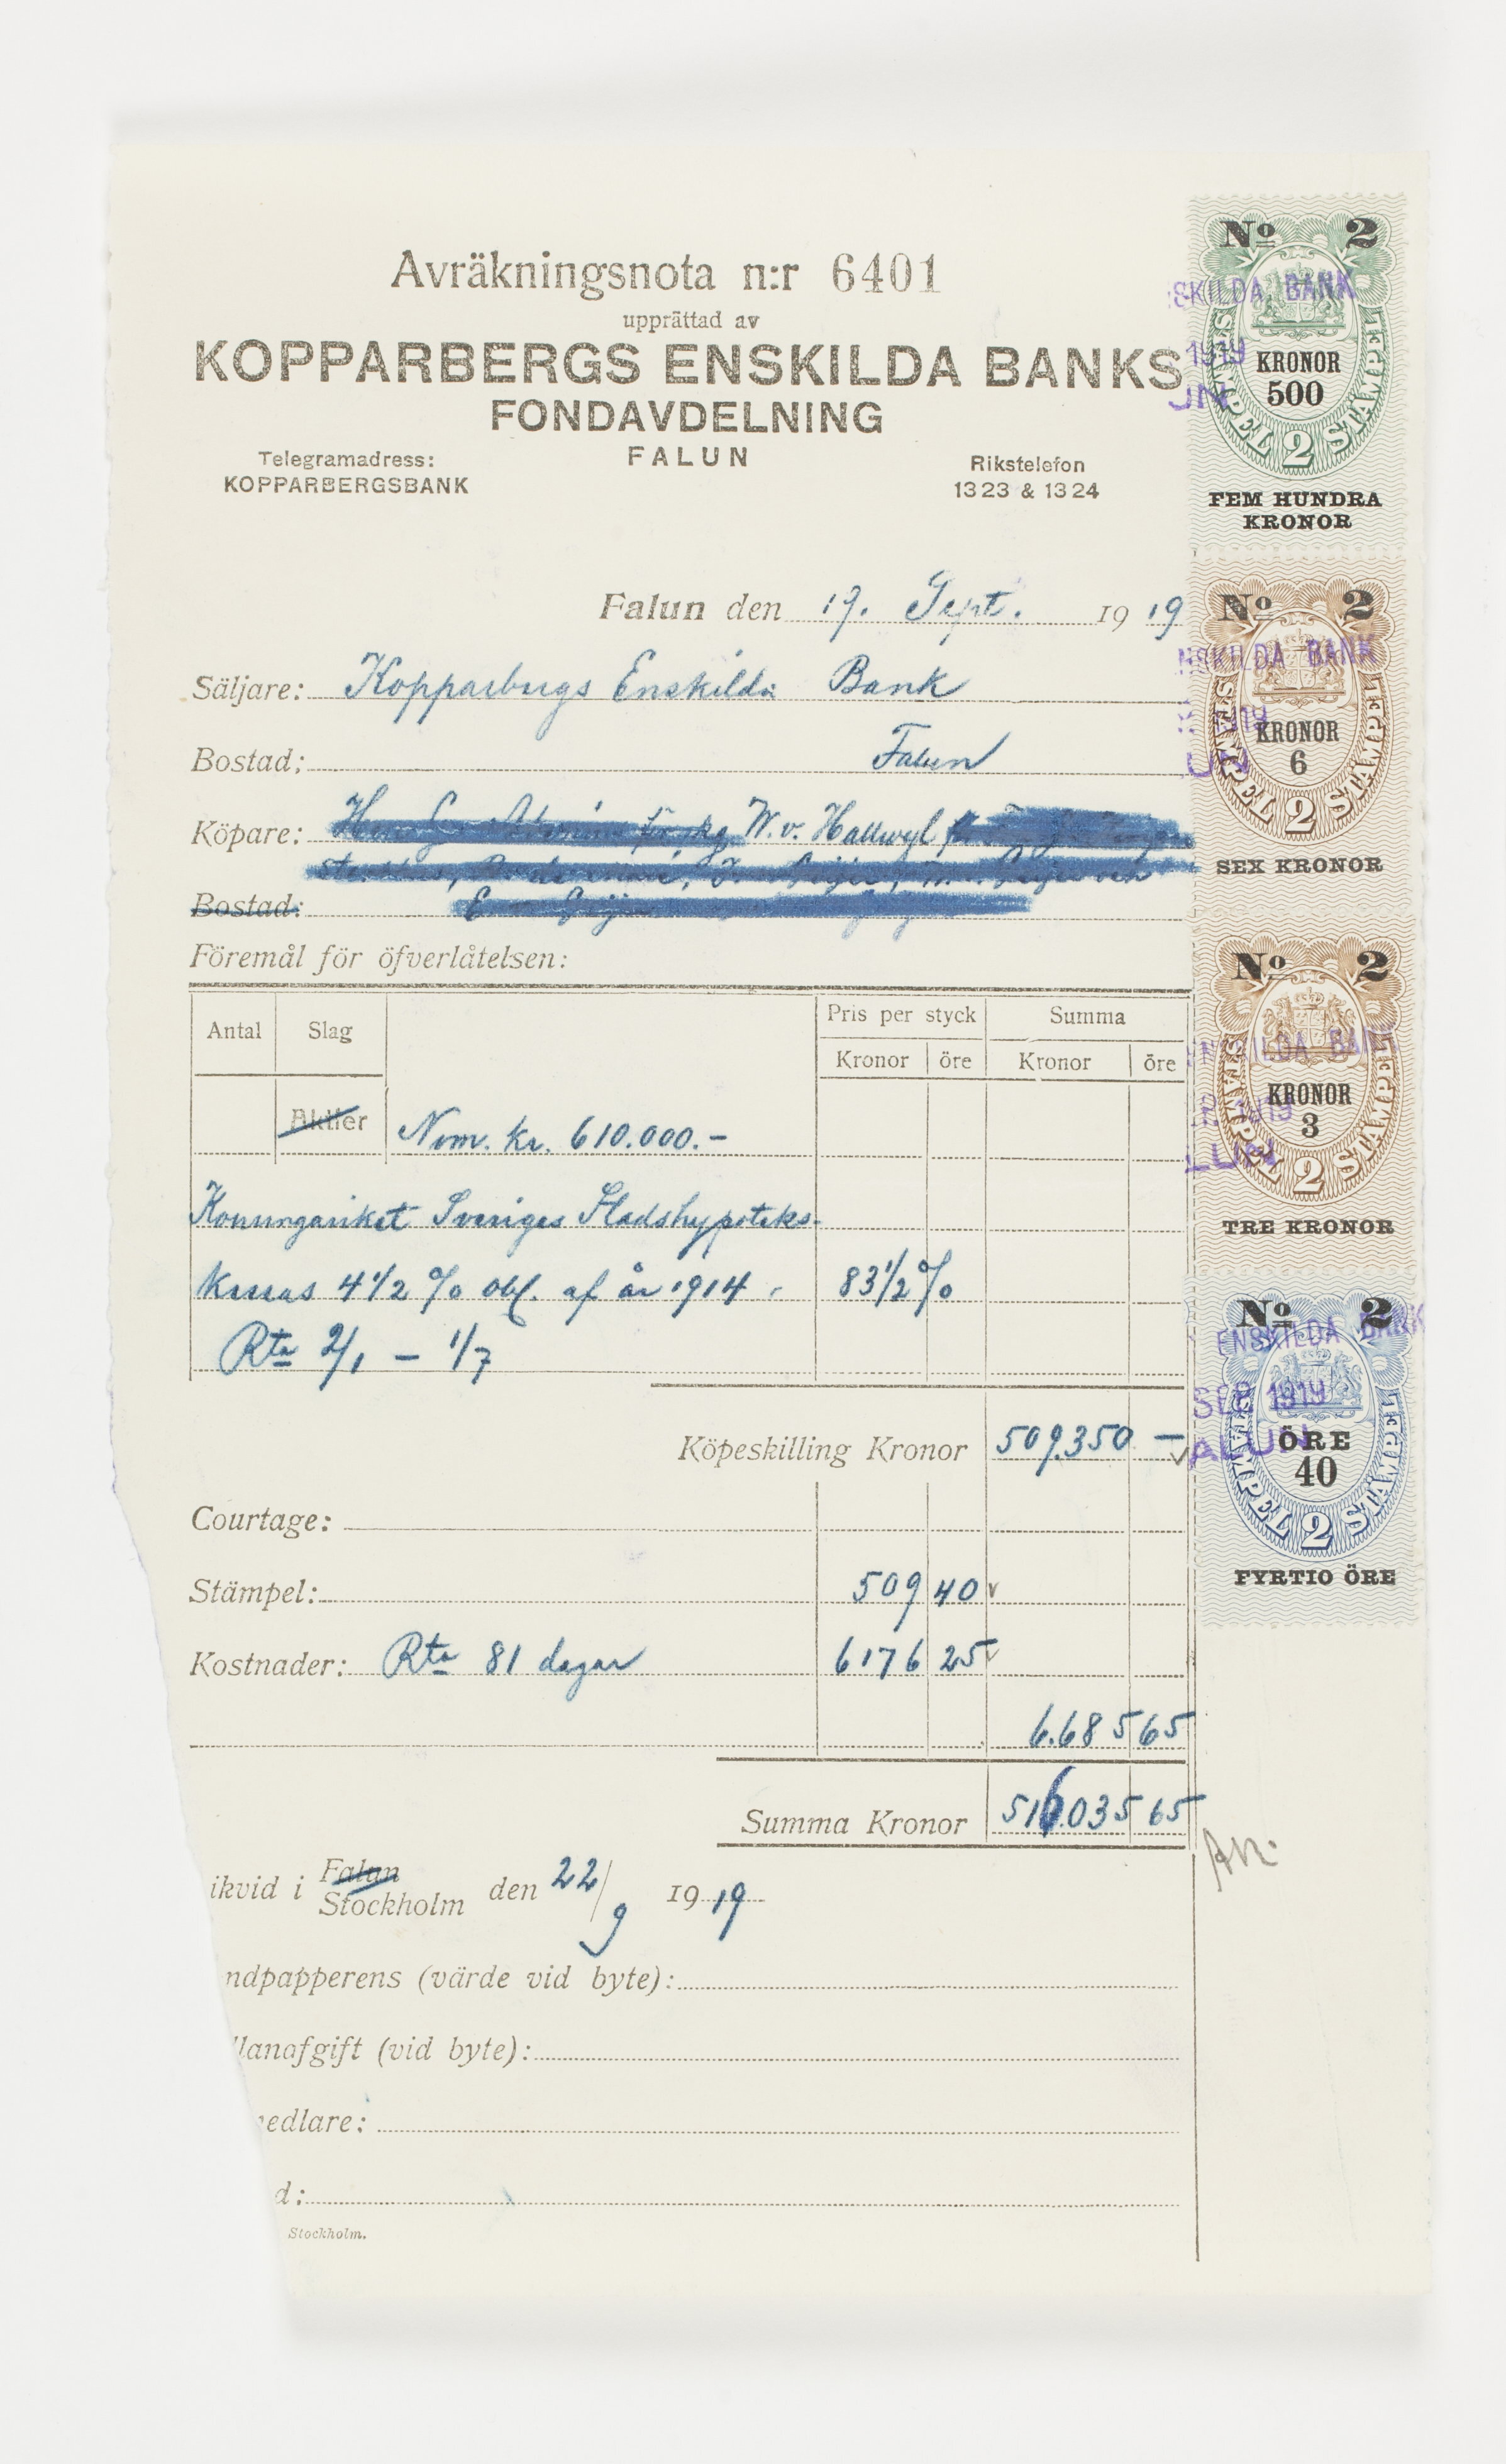 Avräkningsnota n:r 6401
upprättad av
KOPPARBERGS ENSKILDA BANKS
FONDAVDELNING
FALUN
Telegramadress:
KOPPARBERGSBANK
Rikstelefon
1323 & 1324
Falun den 19. Sept. 1919
Säljare: Kopparbergs Enskilda Bank
Bostad: Falun
Köpare: W. v. Hallwyl
Bostad:
Föremål för öfverlåtelsen:
Antal Slag Pris per styck Summa
Kronor öre Kronor öre
Aktier Nom. kr. 610.000.-
Konungariket Sveriges Stadshypoteks-
kassas 4 1/2 % obl. af år 1914 83 1/2 %
Rta 2/1 – 1/7
Köpeskilling Kronor 509.350 –
Courtage:
Stämpel: 509 40
Kostnader: Rta 81 dagar 6176 25
6.685 65
Summa Kronor 516.035 65
ikvid i Falun
Stockholm den 22/9 1919
ndpapperens (värde vid byte):
llanafgift (vid byte):
edlare:
d:
Stockholm.
No 2
SKILDA BANK
1919
UN
KRONOR
500
STÄMPEL 2 STÄMPEL
FEM HUNDRA
KRONOR
No 2
NSKILDA BANK
1919
UN
KRONOR
6
STÄMPEL 2 STÄMPEL
SEX KRONOR
No 2
ENSKILDA BANK
1919
LUN
KRONOR
3
STÄMPEL 2 STÄMPEL
TRE KRONOR
No 2
ENSKILDA BANK
SEP 1919
ALUN
ÖRE
40
STÄMPEL 2 STÄMPEL
FYRTIO ÖRE